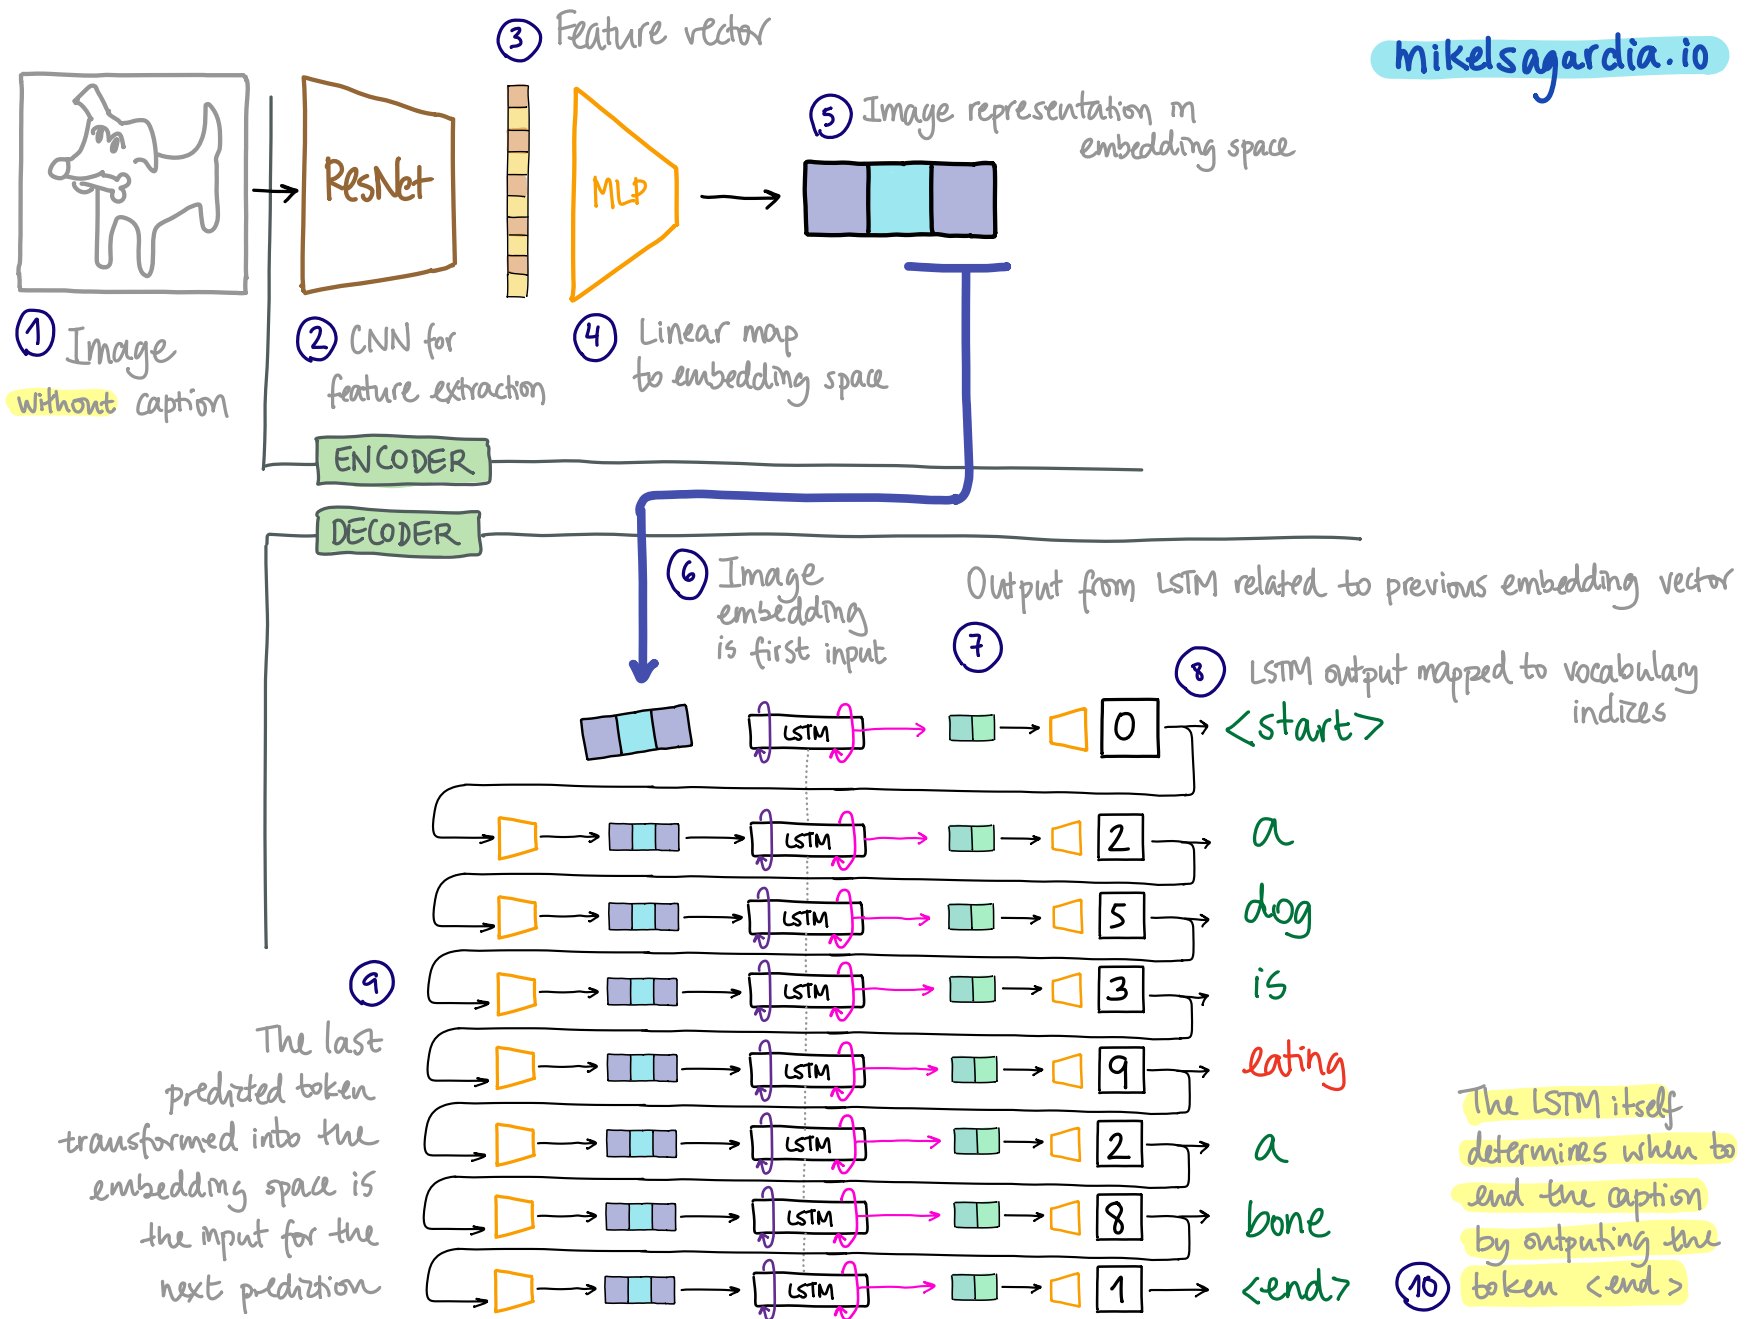 3 Feature vector
mikelsagardia.io
ResNet
MLP
5 Image representation in
embedding space
1 Image
without caption
2 CNN for
feature extraction
4 Linear map
to embedding space
ENCODER
DECODER
6 Image
embedding
is first input
Output from LSTM related to previous embedding vector
7
8 LSTM output mapped to vocabulary
indizes
LSTM 0 <start>
LSTM 2 a
LSTM 5 dog
LSTM 3 is
LSTM 9 eating
LSTM 2 a
LSTM 8 bone
LSTM 1 <end>
9
The last
predicted token
transformed into the
embedding space is
the input for the
next prediction
The LSTM itself
determines when to
end the caption
by outputing the
10 token <end>